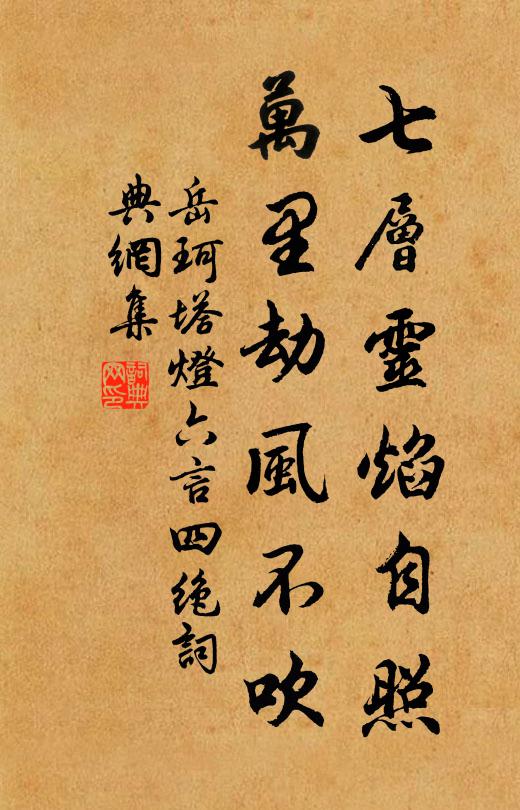 七層靈焰自照
萬里劫風不吹
岳珂塔燈六言四絶詞
典網集
詞典网印